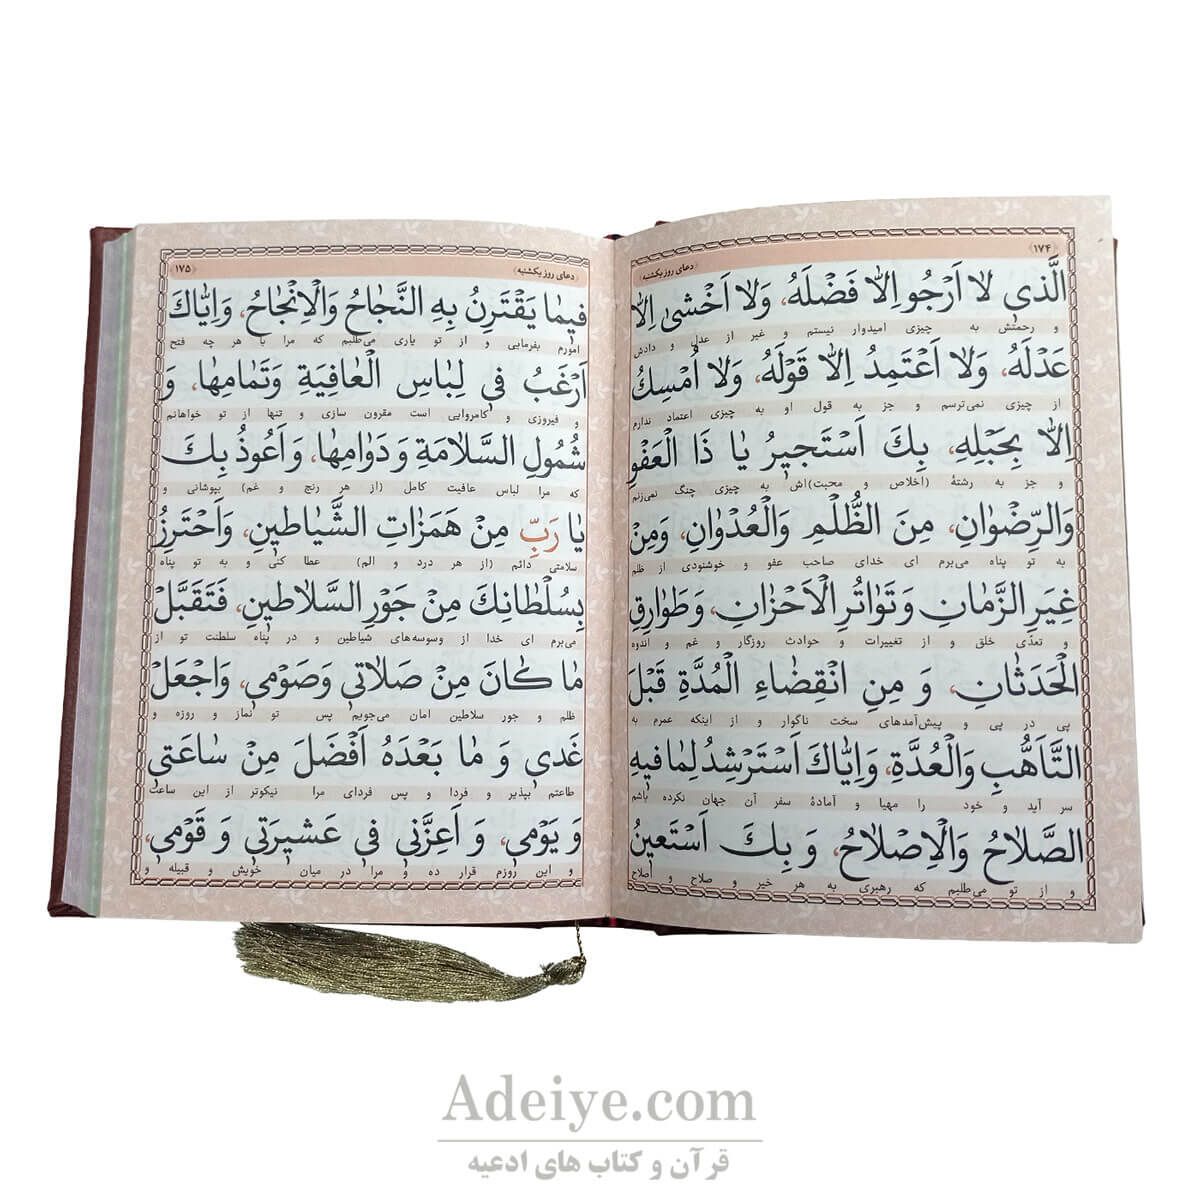 ﴿۱۷۴﴾ ﴿دعای روز یکشنبه﴾
الَّذي لا اَرْجُو اِلاّ فَضْلَهُ، وَلا اَخْشىٰ اِلاّ
و رحمتش به چیزی امیدوار نیستم و غیر از عدل و دادش
عَدْلَهُ، وَلا اَعْتَمِدُ اِلاّ قَوْلَهُ، وَلا اُمْسِكُ
از چیزی نمی‌ترسم و جز به قول او به چیزی اعتماد ندارم
اِلاّ بِحَبْلِهِ، بِكَ اَسْتَجيرُ يا ذَا الْعَفْوِ
و جز به رشتهٔ (اخلاص و محبت)اش به چیزی چنگ نمی‌زنم
وَالرِّضْوانِ، مِنَ الظُّلْمِ وَالْعُدْوانِ، وَمِنْ
به تو پناه می‌برم ای خدای صاحب عفو و خوشنودی از ظلم
غِيَرِ الزَّمانِ وَ تَواتُرِ الْاَحْزانِ، وَ طَوارِقِ
و تعدّی خلق و از تغییرات و حوادث روزگار و غم و اندوه
الْحَدَثانِ، وَ مِنِ انْقِضاءِ الْمُدَّةِ قَبْلَ
پی در پی و پیش‌آمدهای سخت ناگوار و از اینکه عمرم به
التَّاَهُّبِ وَالْعُدَّةِ، وَ اِيّاكَ اَسْتَرْشِدُ لِما فيهِ
سر آید و خود را مهیا و آمادهٔ سفر آن جهان نکرده باشم
الصَّلاحُ وَالْاِصْلاحُ، وَ بِكَ اَسْتَعينُ
و از تو می‌طلبم که رهبری به هر خیر و صلاح و اصلاح
﴿دعای روز یکشنبه﴾ ﴿۱۷۵﴾
فيما يَقْتَرِنُ بِهِ النَّجاحُ وَالْاِنْجاحُ، وَ اِيّاكَ
امورم بفرمایی و از تو یاری می‌طلبم که مرا با هر چه فتح
اَرْغَبُ في لِباسِ الْعافِيَةِ وَ تَمامِها، وَ
و فیروزی و کامروایی است مقرون سازی و تنها از تو خواهانم
شُمُولِ السَّلامَةِ وَ دَوامِها، وَ اَعُوذُ بِكَ
که مرا لباس عافیت کامل (از هر رنج و غم) بپوشانی و
يا رَبِّ مِنْ هَمَزاتِ الشَّياطينِ، وَ اَحْتَرِزُ
سلامتی دائم (از هر درد و الم) عطا کنی و به تو پناه
بِسُلْطانِكَ مِنْ جَوْرِ السَّلاطينِ، فَتَقَبَّلْ
می‌برم ای خدا از وسوسه‌های شیاطین و در پناه سلطنت تو از
ما كانَ مِنْ صَلاتي وَ صَوْمي، وَ اجْعَلْ
ظلم و جور سلاطین امان می‌جویم پس تو نماز و روزه و
غَدي وَ ما بَعْدَهُ اَفْضَلَ مِنْ ساعَتي
طاعتم بپذیر و فردا و پس فردای مرا نیکوتر از این ساعت
وَ يَوْمي، وَ اَعِزَّني في عَشيرَتي وَ قَوْمي،
و این روزم قرار ده و مرا در میان خویش و قبیله و
Adeiye.com
قرآن و کتاب های ادعیه